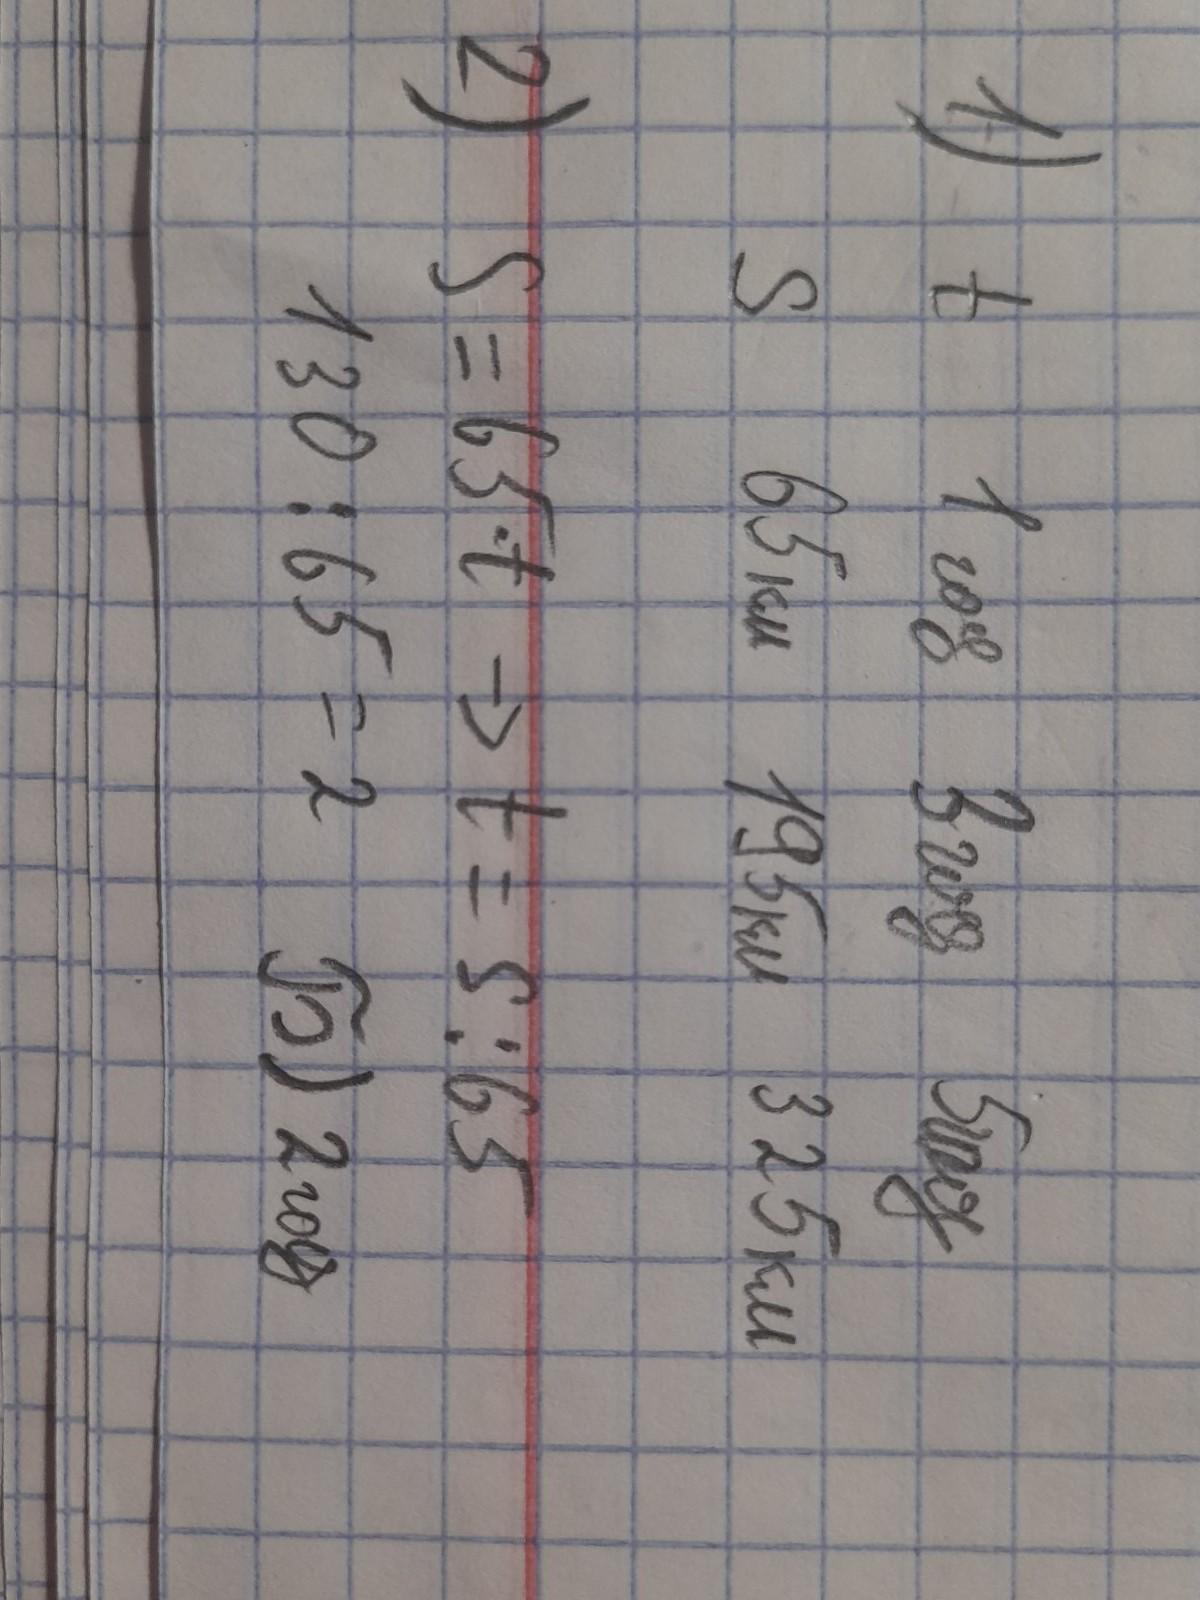 1) t 1 год 3 год 5 год
S 65 км 195 км 325 км
2) S = 65·t → t = S : 65
130 : 65 = 2 Б) 2 год